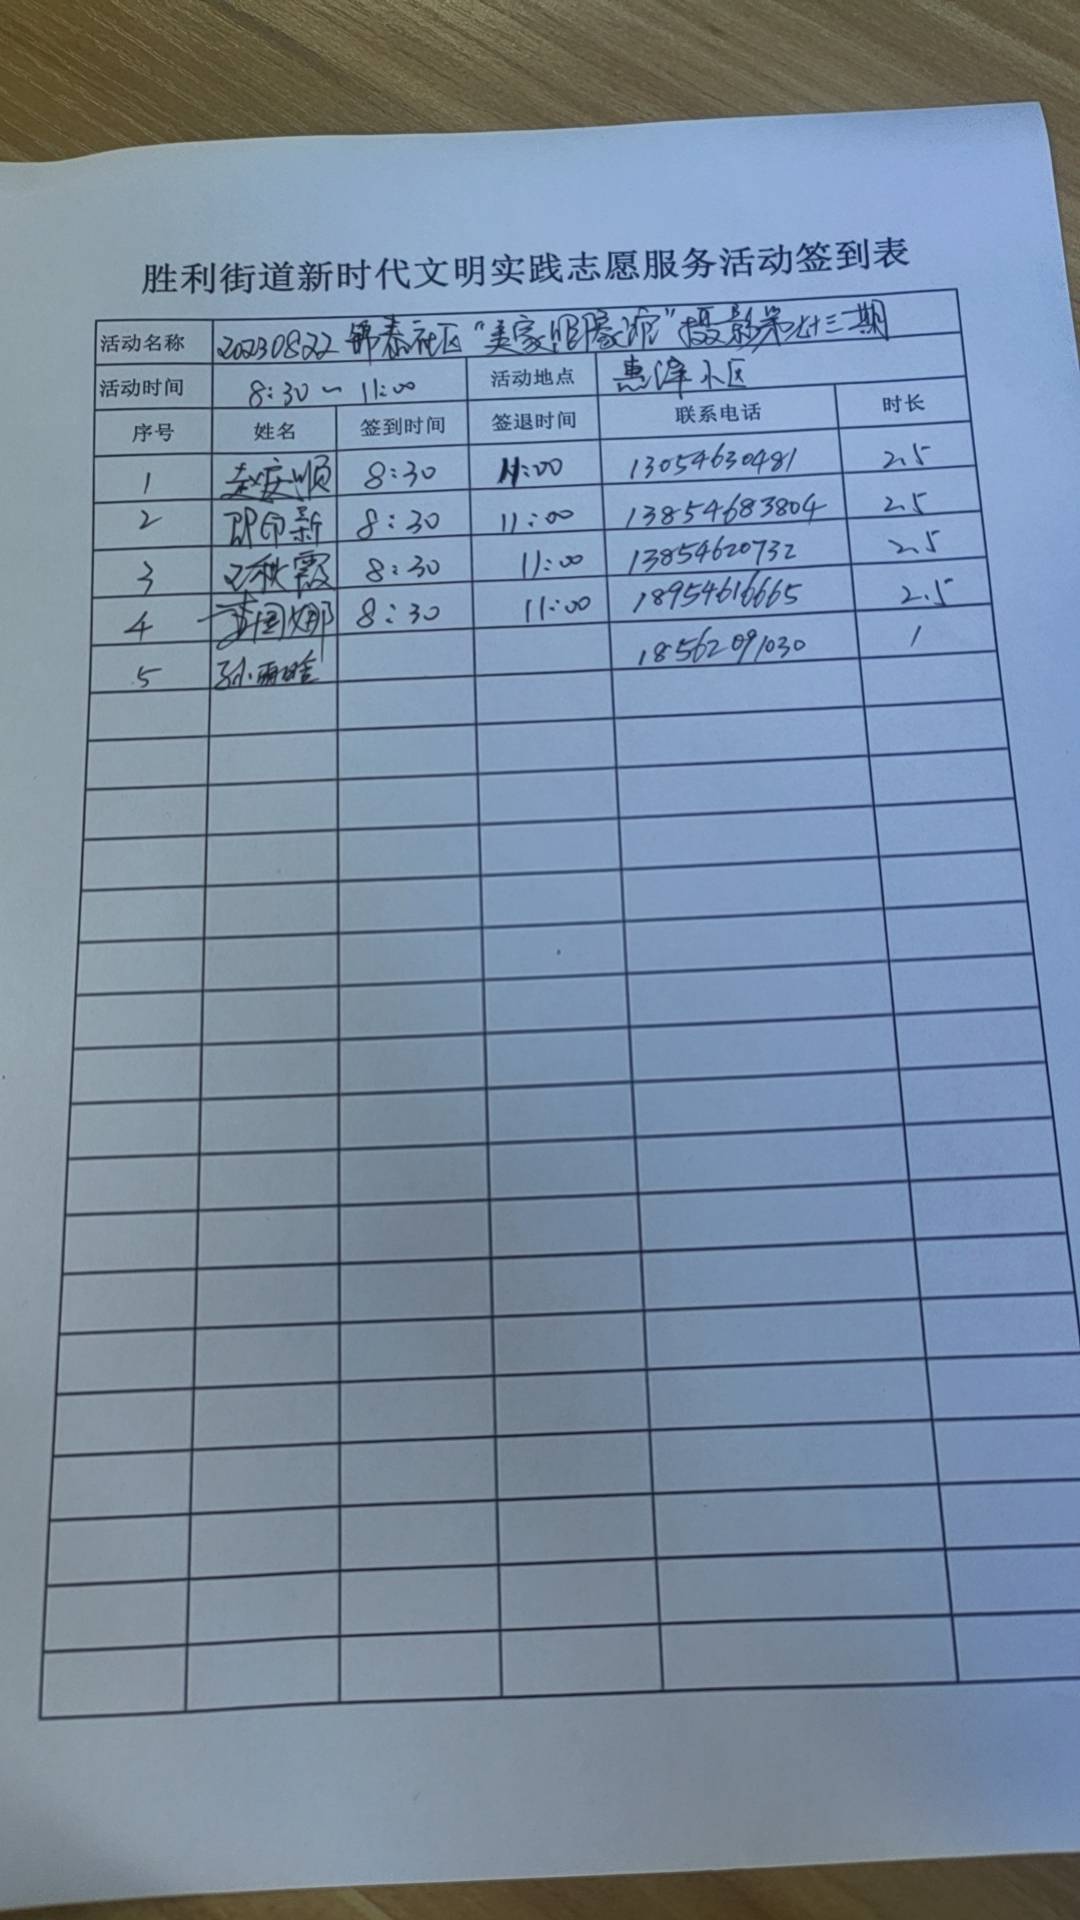 胜利街道新时代文明实践志愿服务活动签到表
活动名称 20230822 锦泰社区"美家照相馆"摄影第七十三期
活动时间 8:30～11:00 活动地点 惠泽小区
序号 姓名 签到时间 签退时间 联系电话 时长
1 赵庆顺 8:30 11:00 13054630481 2.5
2 8:30 11:00 13854683804 2.5
3 王秋霞 8:30 11:00 13854620732 2.5
4 8:30 11:00 18954616665 2.5
5 孙丽 18562091030 1